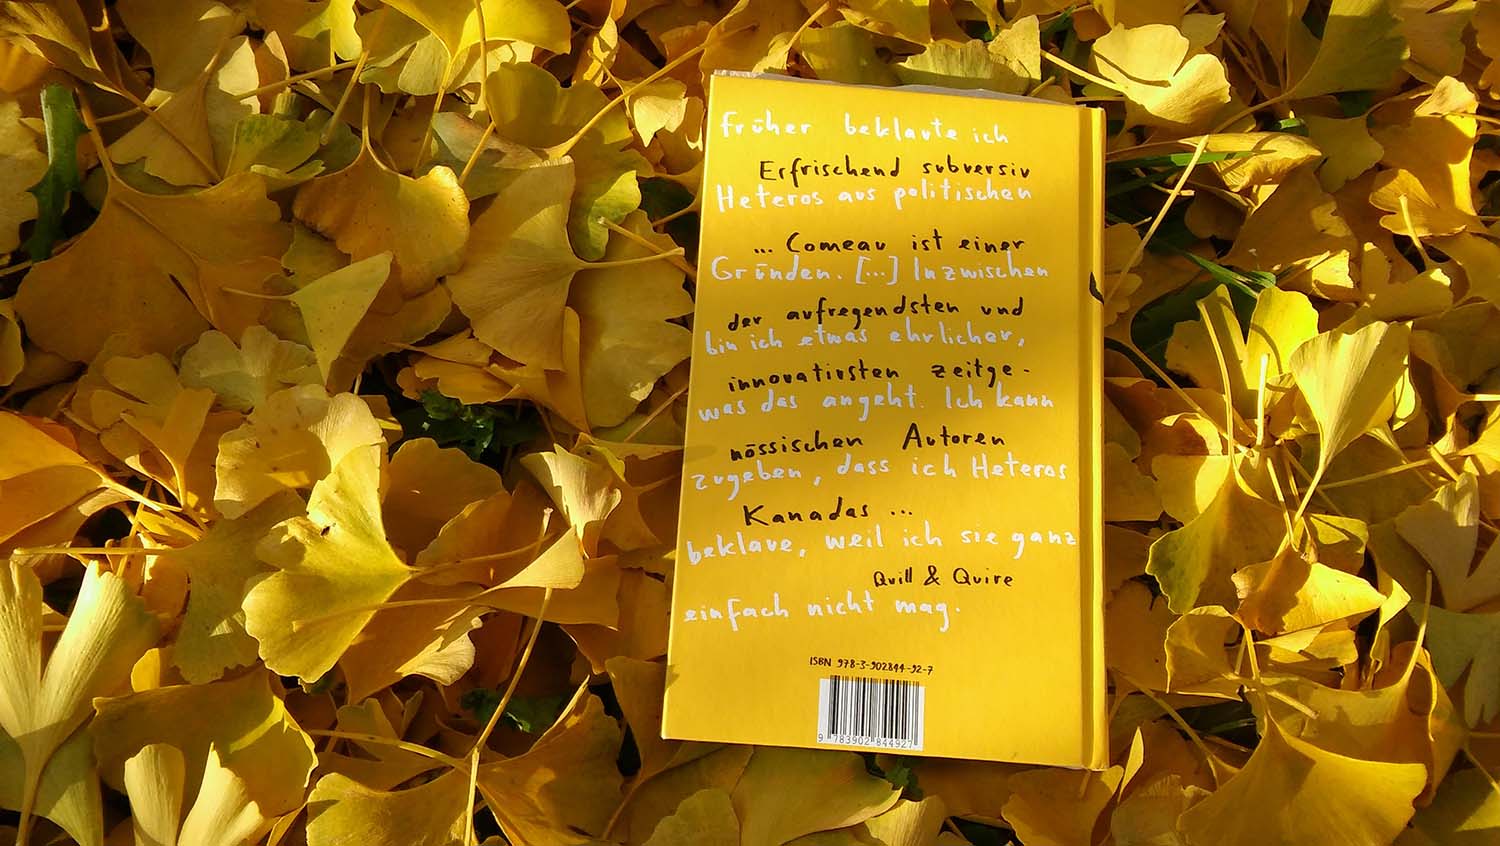 früher beklaute ich
Erfrischend subversiv
Heteros aus politischen
... Comeau ist einer
Gründen. [...] Inzwischen
der aufregendsten und
bin ich etwas ehrlicher,
innovativsten zeitge-
was das angeht. Ich kann
nössischen Autoren
zugeben, dass ich Heteros
Kanadas ...
beklaue, weil ich sie ganz
Quill & Quire
einfach nicht mag.
ISBN 978-3-902844-92-7
9 783902 844927